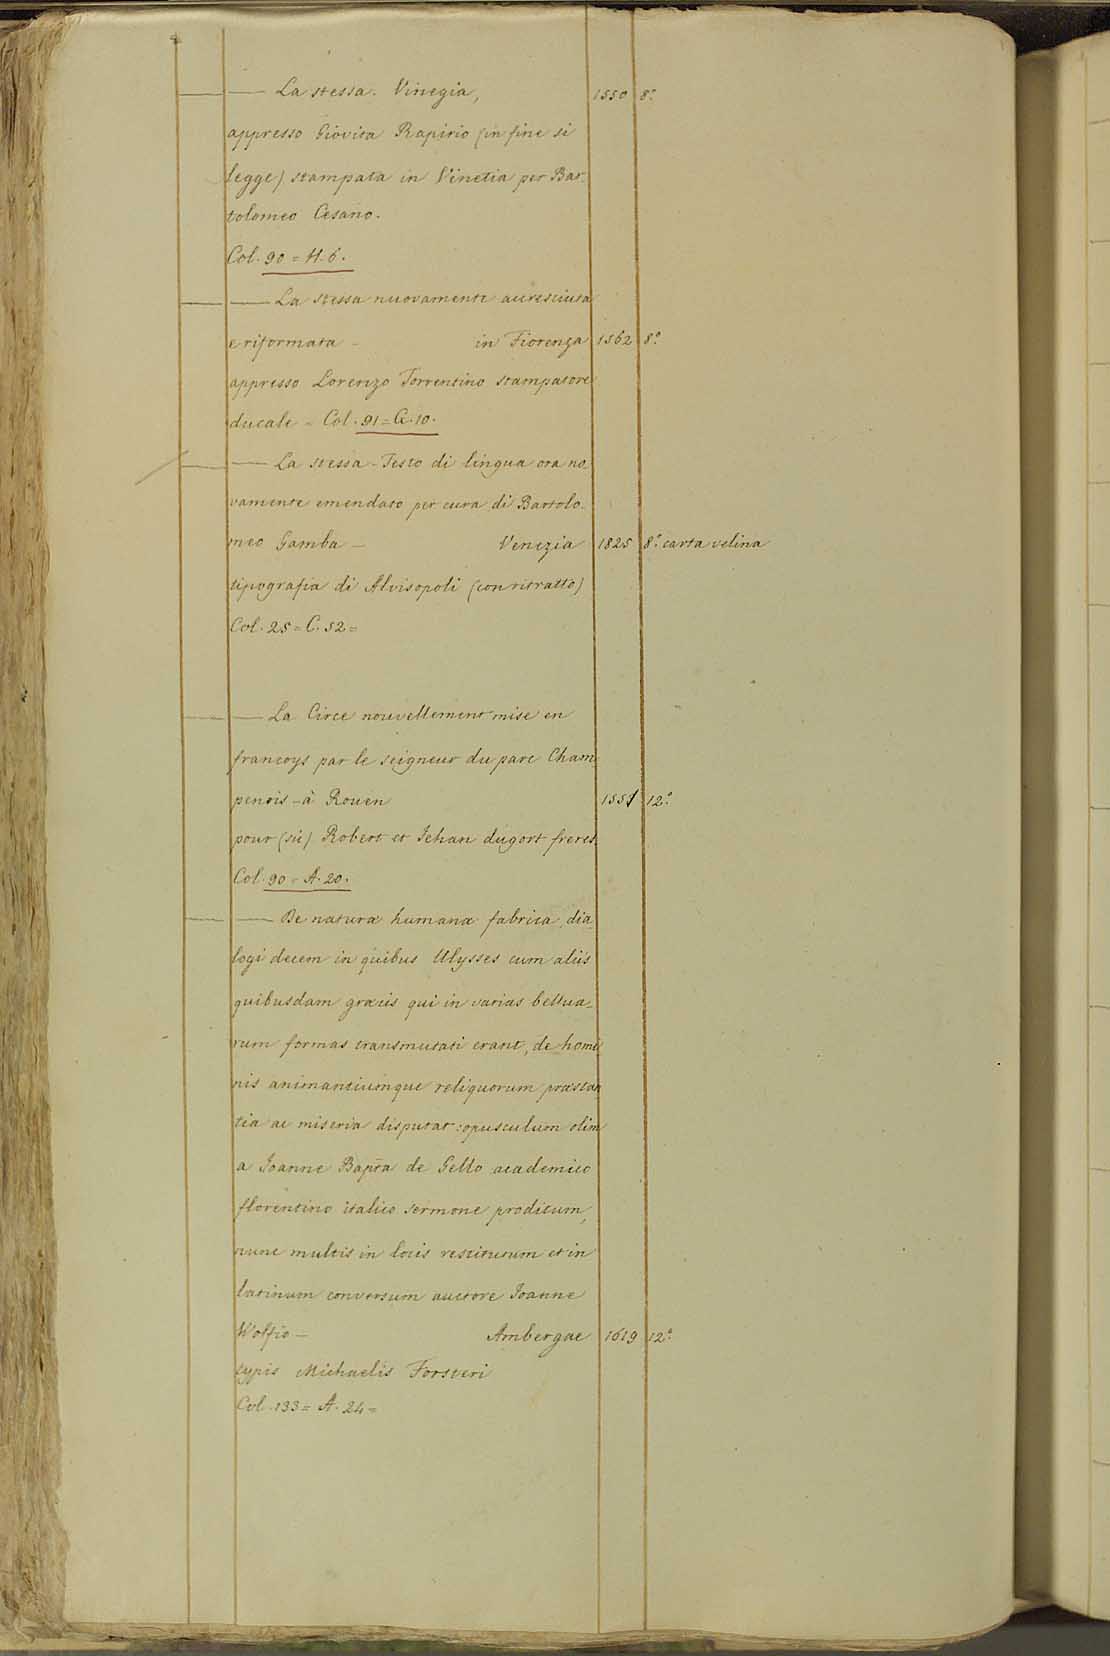 — La stessa. Vinegia, 1550 8.°
appresso Giovita Rapirio (in fine si
legge) stampata in Vinetia per Bar-
tolomeo Cesano.
Col. 90 = H. 6.
— La stessa nuovamente accresciuta
e riformata – in Fiorenza 1562 8.°
appresso Lorenzo Torrentino stampatore
ducale – Col. 91 = C. 10.
— La stessa – Testo di lingua ora no
vamente emendato per cura di Bartolo-
meo Gamba – Venezia 1825 8.° carta velina
tipografia di Alvisopoli (con ritratto)
Col. 25 = C. 52 =
— La Circe nouvellement mise en
francoys par le seigneur du parc Cham
penois – à Rouen 1551 12.°
pour (sic) Robert et Jehan dugort freres
Col. 90 = A. 20.
— De naturæ humanæ fabrica, dia
logi decem in quibus Ulysses cum aliis
quibusdam græcis qui in varias bellua-
rum formas transmutati erant, de homi
nis animantiumque reliquorum præstan
tia ac miseria disputat: opusculum olim
a Joanne Bapta de Gello academico
florentino italico sermone proditum,
nunc multis in locis restitutum et in
latinum conversum auctore Joanne
Wolfio – Ambergae 1619 12.°
typis Michaelis Forsteri
Col. 133 = A. 24 =